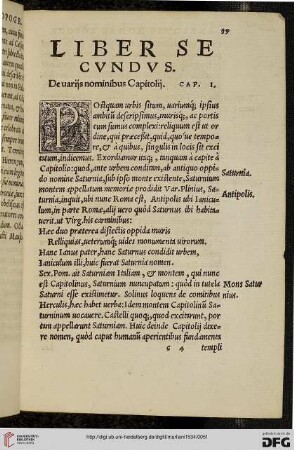 99
LIBER SE
CVNDVS.
De uarijs nominibus Capitolij. CAP. I.
POstquam urbis situm, uariumq; ipsius
ambitũ descripsimus, murisq;, ac portis
eum sumus complexi: reliquum est ut or
dine, qui præcesit, quid, quo'ue tempo=
re, & à quibus, singulis in locis sit exci
tatum, indicemus. Exordiamur itaq;, tanquam à capite à
Capitolio: quod, ante urbem conditam, ab antiquo oppi=
do nomine Saturnia, sub ipso monte existente, Saturnium
montem appellatum memoriæ prodidit Var. Plinius, Satur
nia, inquit, ubi nunc Roma est, Antipolis ubi Ianicu=
lum, in parte Romæ, alij uero quòd Saturnus ibi habita=
uerit. ut Virg. his carminibus:
Saturnia.
Antipolis.
Hæc duo præterea disiectis oppida muris
Relliquias, ueterumq; uides monumenta uirorum.
Hanc Ianus pater, hanc Saturnus condidit urbem,
Ianiculum illi, huic fuerat Saturnia nomen.
Sex. Pom. ait Saturniam Italiam, & montem, qui nunc
est Capitolinus, Saturnium nuncupatum: quòd in tutela
Saturni esse existimetur. Solinus loquens de comitibus
Herculis, hæc habet uerba: Idem montem Capitolinũ Sa=
turninum uocauere. Castelli quoq;, quod excitarunt, por
tam appellarunt Saturniam. Huic deinde Capitolij dixe=
re nomen, quòd caput humanũ aperientibus fundamenta
Mons Satur
nius.
G 4 templi
UNIVERSITÄTS-
BIBLIOTHEK
HEIDELBERG
DFG